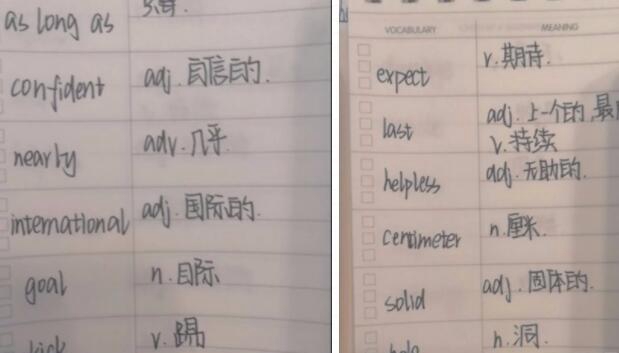 as long as
confident adj. 自信的.
nearly adv. 几乎.
international adj. 国际的.
goal n. 目际
kick v. 踢
VOCABULARY MEANING
expect v. 期待.
last adj. 上一个的,最
v. 持续
helpless adj. 无助的.
centimeter n. 厘米.
solid adj. 固体的.
n. 洞.